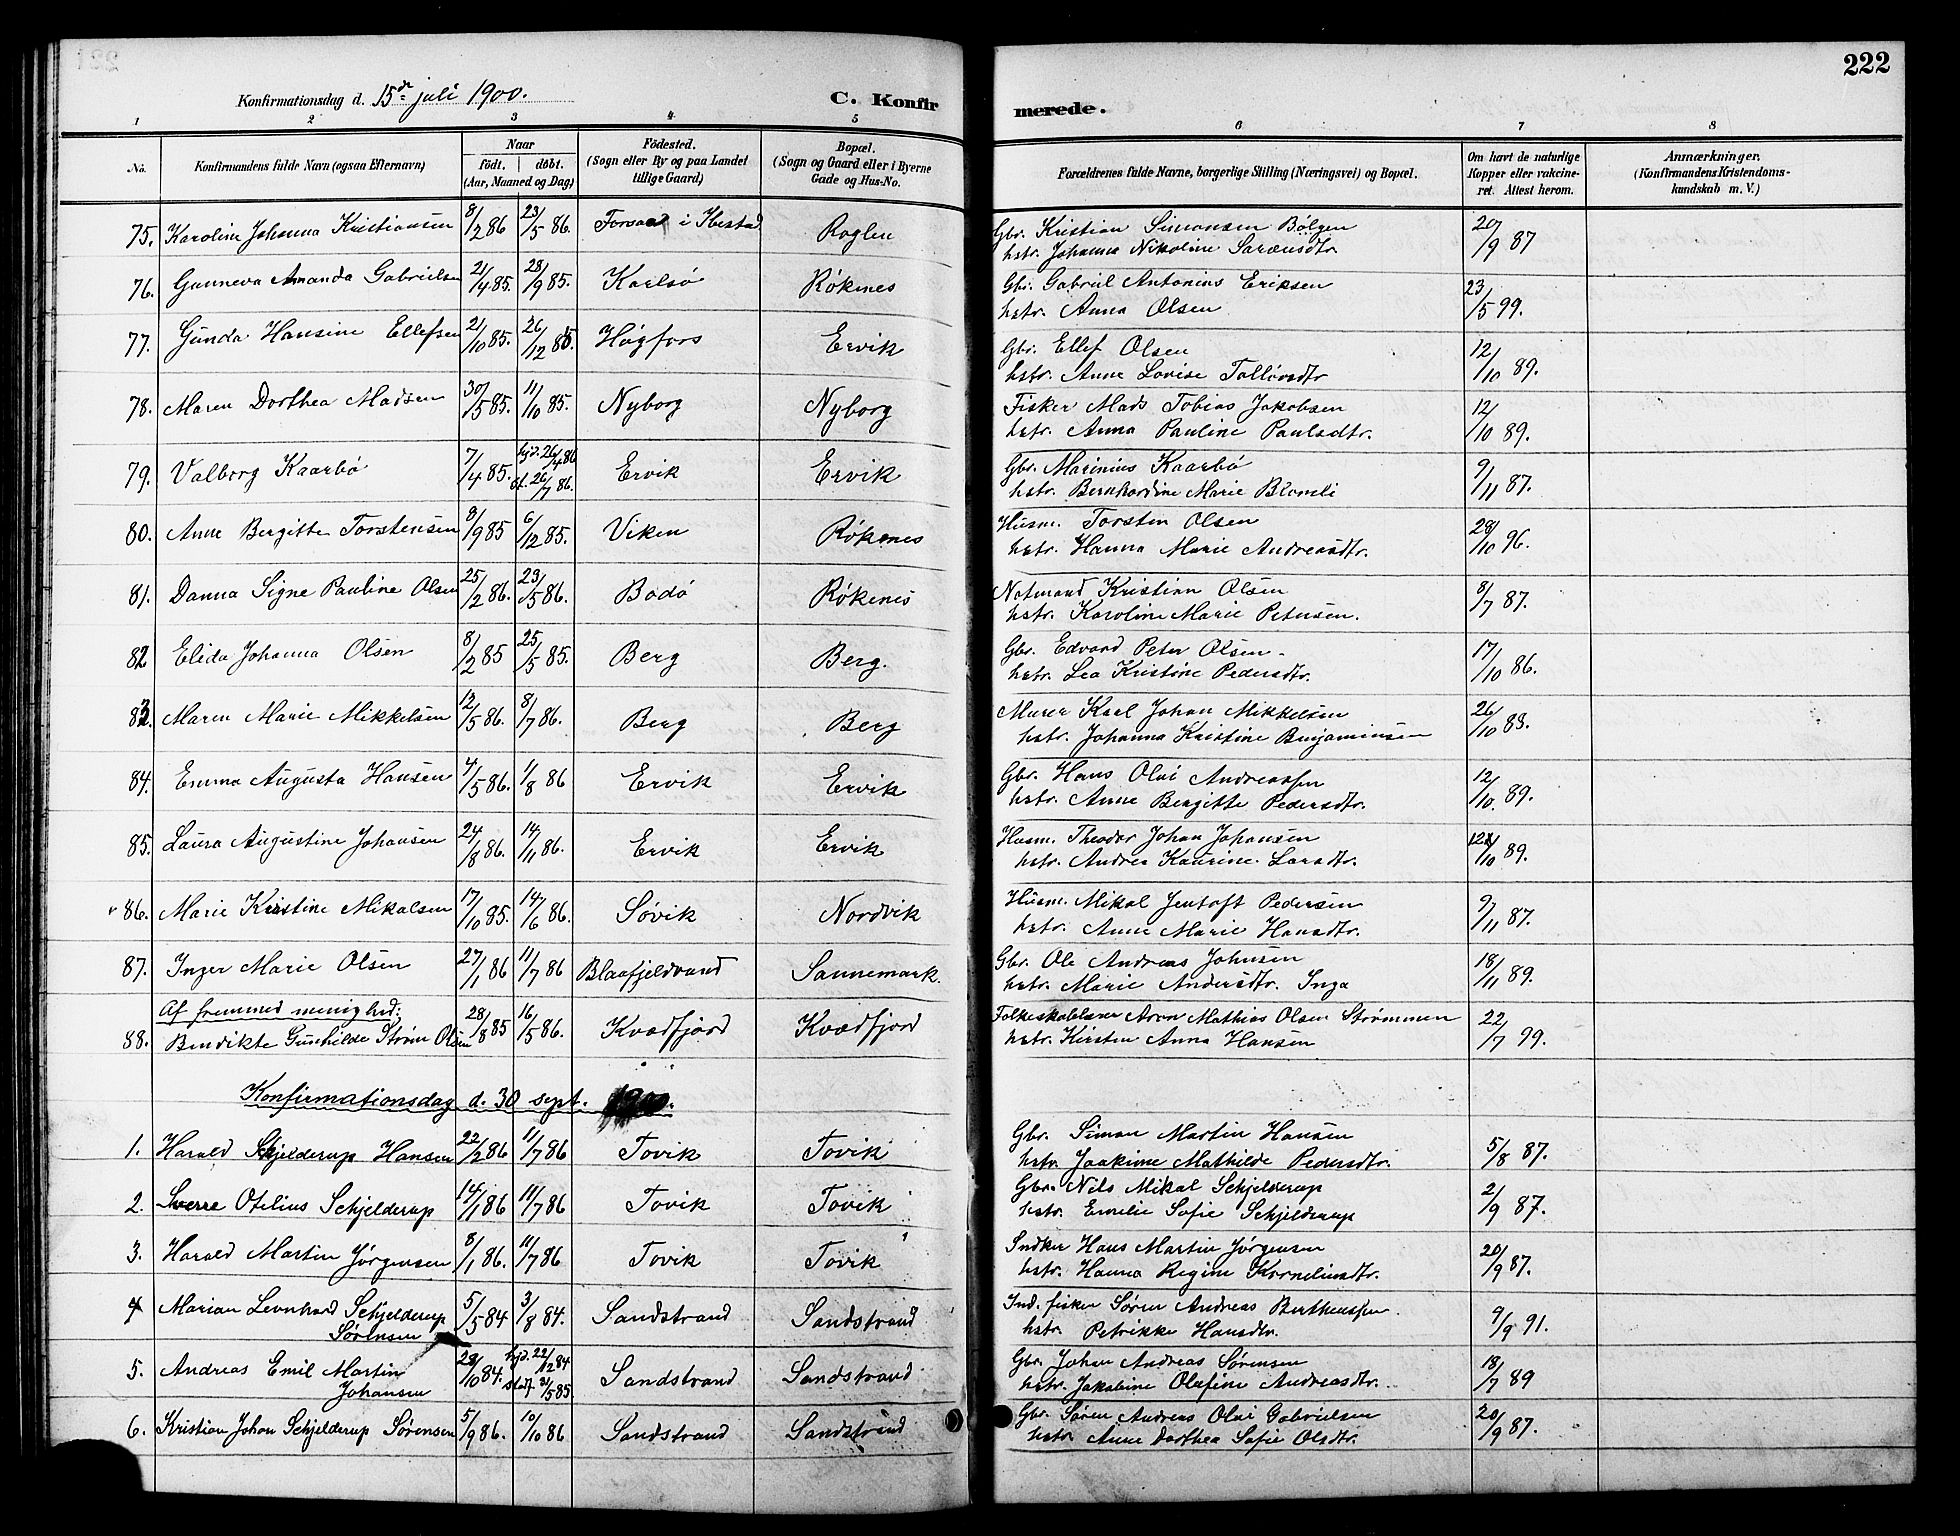 222
Konfirmationsdag d. 15de juli 1900. C. Konfir merede.
1 2 3 4 5 6 7 8
No. Konfirmandens fulde Navn (ogsaa Efternavn) Naar födt. döbt. (Aar, Maaned og Dag) Födested. (Sogn eller By og paa Landet tillige Gaard) Bopæl. (Sogn og Gaard eller i Byerne Gade og Hus-No. Forældrenes fulde Navne, borgerlige Stilling (Næringsvei) og Bopæl. Om havt de naturlige Kopper eller vakcineret. Attest herom. Anmærkninger. (Konfirmandens Kristendomskundskab m. V.)
75. Karoline Johanna Kristiansen 8/2 86 23/5 86. i Ibestad Roglen Gbr. Kristian Simonsen Bölgen 20/9 87
hstr. Johanna Nikoline Sørensdtr
76. Gunneva Amanda Gabrielsen 21/4 85. 28/9 85. Karlsö Rökenes Gbr. Gabriel Antonius Eriksen 23/5 99.
hstr. Anna Olsen
77. Gunda Hansine Ellefsen 21/10 85. 26/12 85. Högfors Ervik Gbr. Ellef Olsen 12/10 89.
hstr. Anne Lovise Tollevsdtr
78. Maren Dorthea Madsen 30/5 85. 11/10 85. Nyborg Nyborg Fisker Mads Tobias Jakobsen 12/10 89.
hstr. Anna Pauline Paulsdtr.
79. Valborg Kaarbö 7/4 85. hjd. 26/4 86 st. 26/7 86. Ervik Ervik Gbr. Marinius Kaarbö 9/11 87.
hstr. Bernhardine Marie Blomli
80. Anne Bergitte Torstensen 8/9 85 6/12 85. Viken Rökenes Husm. Torstin Olsen 28/10 96.
hstr. Hanna Marie Andreasdtr.
81. Danna Signe Pauline Olsen 25/2 86. 23/5 86. Bodö Rökenes Notmand Kristian Olsen 8/7 87.
hstr. Karoline Marie Petersen.
82 Elida Johanna Olsen 8/2 85 25/5 85. Berg Berg. Gbr. Edvard Peter Olsen. 17/10 86.
hstr. Lea Kristine Pedersdtr.
83. Maren Marie Mikkelsen 12/5 86. 8/7 86. Berg Berg Murer Karl Johan Mikkelsen 26/10 88.
hstr. Johanna Kristine Benjaminsen
84. Emma Augusta Hansen 4/5 86. 1/8 86 Ervik Ervik Gbr. Hans Olai Andreassen 12/10. 89.
hstr. Anne Bergitte Pedersdtr.
85. Laura Augustine Johansen 24/8 86. 14/11 86. Ervik Ervik Husm. Theodor Johan Johansen 12/10 89.
hstr. Andrea Kaurine Larsdtr.
86. Marie Kristine Mikalsen 17/10 85. 14/6 86. Sövik Nordvik Husm. Mikal Jentoft Pedersen 9/11 87.
hstr. Anne Marie Hansdtr.
87. Inger Marie Olsen 27/1 86 11/7 86 Blaafjeldvand Sannemark. Gbr. Ole Andreas Johnsen 18/11 89.
hstr. Marie Andersdtr. Inga
Af fremmed menighed:
88. Bendikte Gunhilde Ström Olsen 28/8 85 16/5 86. Kvædfjord Kvædfjord Folkeskolelærer Aron Mathias Olsen Strömmen 22/7 99.
hstr. Kirsten Anna Hansen
Konfirmationsdag d. 30 sept. 1900.
1. Harald Schjelderup Hansen 22/2 86 11/7 86 Tovik Tovik Gbr. Simon Martin Hansen 5/8 87.
hstr. Joakime Mathilde Pedersdtr.
2. Sverre Otilius Schjelderup 14/1 86 11/7 86 Tovik Tovik Gbr. Nils Mikal Schjelderup 2/9 87.
hstr. Emelie Sofie Schjelderup
3. Harald Martin Jörgensen 8/1 86. 11/7 86 Tovik Tovik Sndker Hans Martin Jörgensen 20/9 87.
hstr. Hanna Regine Korneliusdtr.
4 Marian Leonhard Schjelderup Sörensen 5/5 84 3/8 84. Sandstrand Sandstrand Ind. fisker Sören Andreas Bertheussen. 9/9 91.
hstr. Petrikke Hansdtr.
5. Andreas Emil Martin Johansen 28/10 84. hjd. 22/12 84 stadf. 21/5 85. Sandstrand Sandstrand Gbr. Johan Andreas Sörensen 18/7 89
hstr. Jakobine Olefine Andreasdtr.
6. Kristian Johan Schjelderup Sörensen 5/9 86. 10/10 86 Sandstrand Sandstrand Gbr. Sören Andreas Olai Gabrielsen 20/9 87.
hstr. Anne Dorthea Sofie Olsdtr.